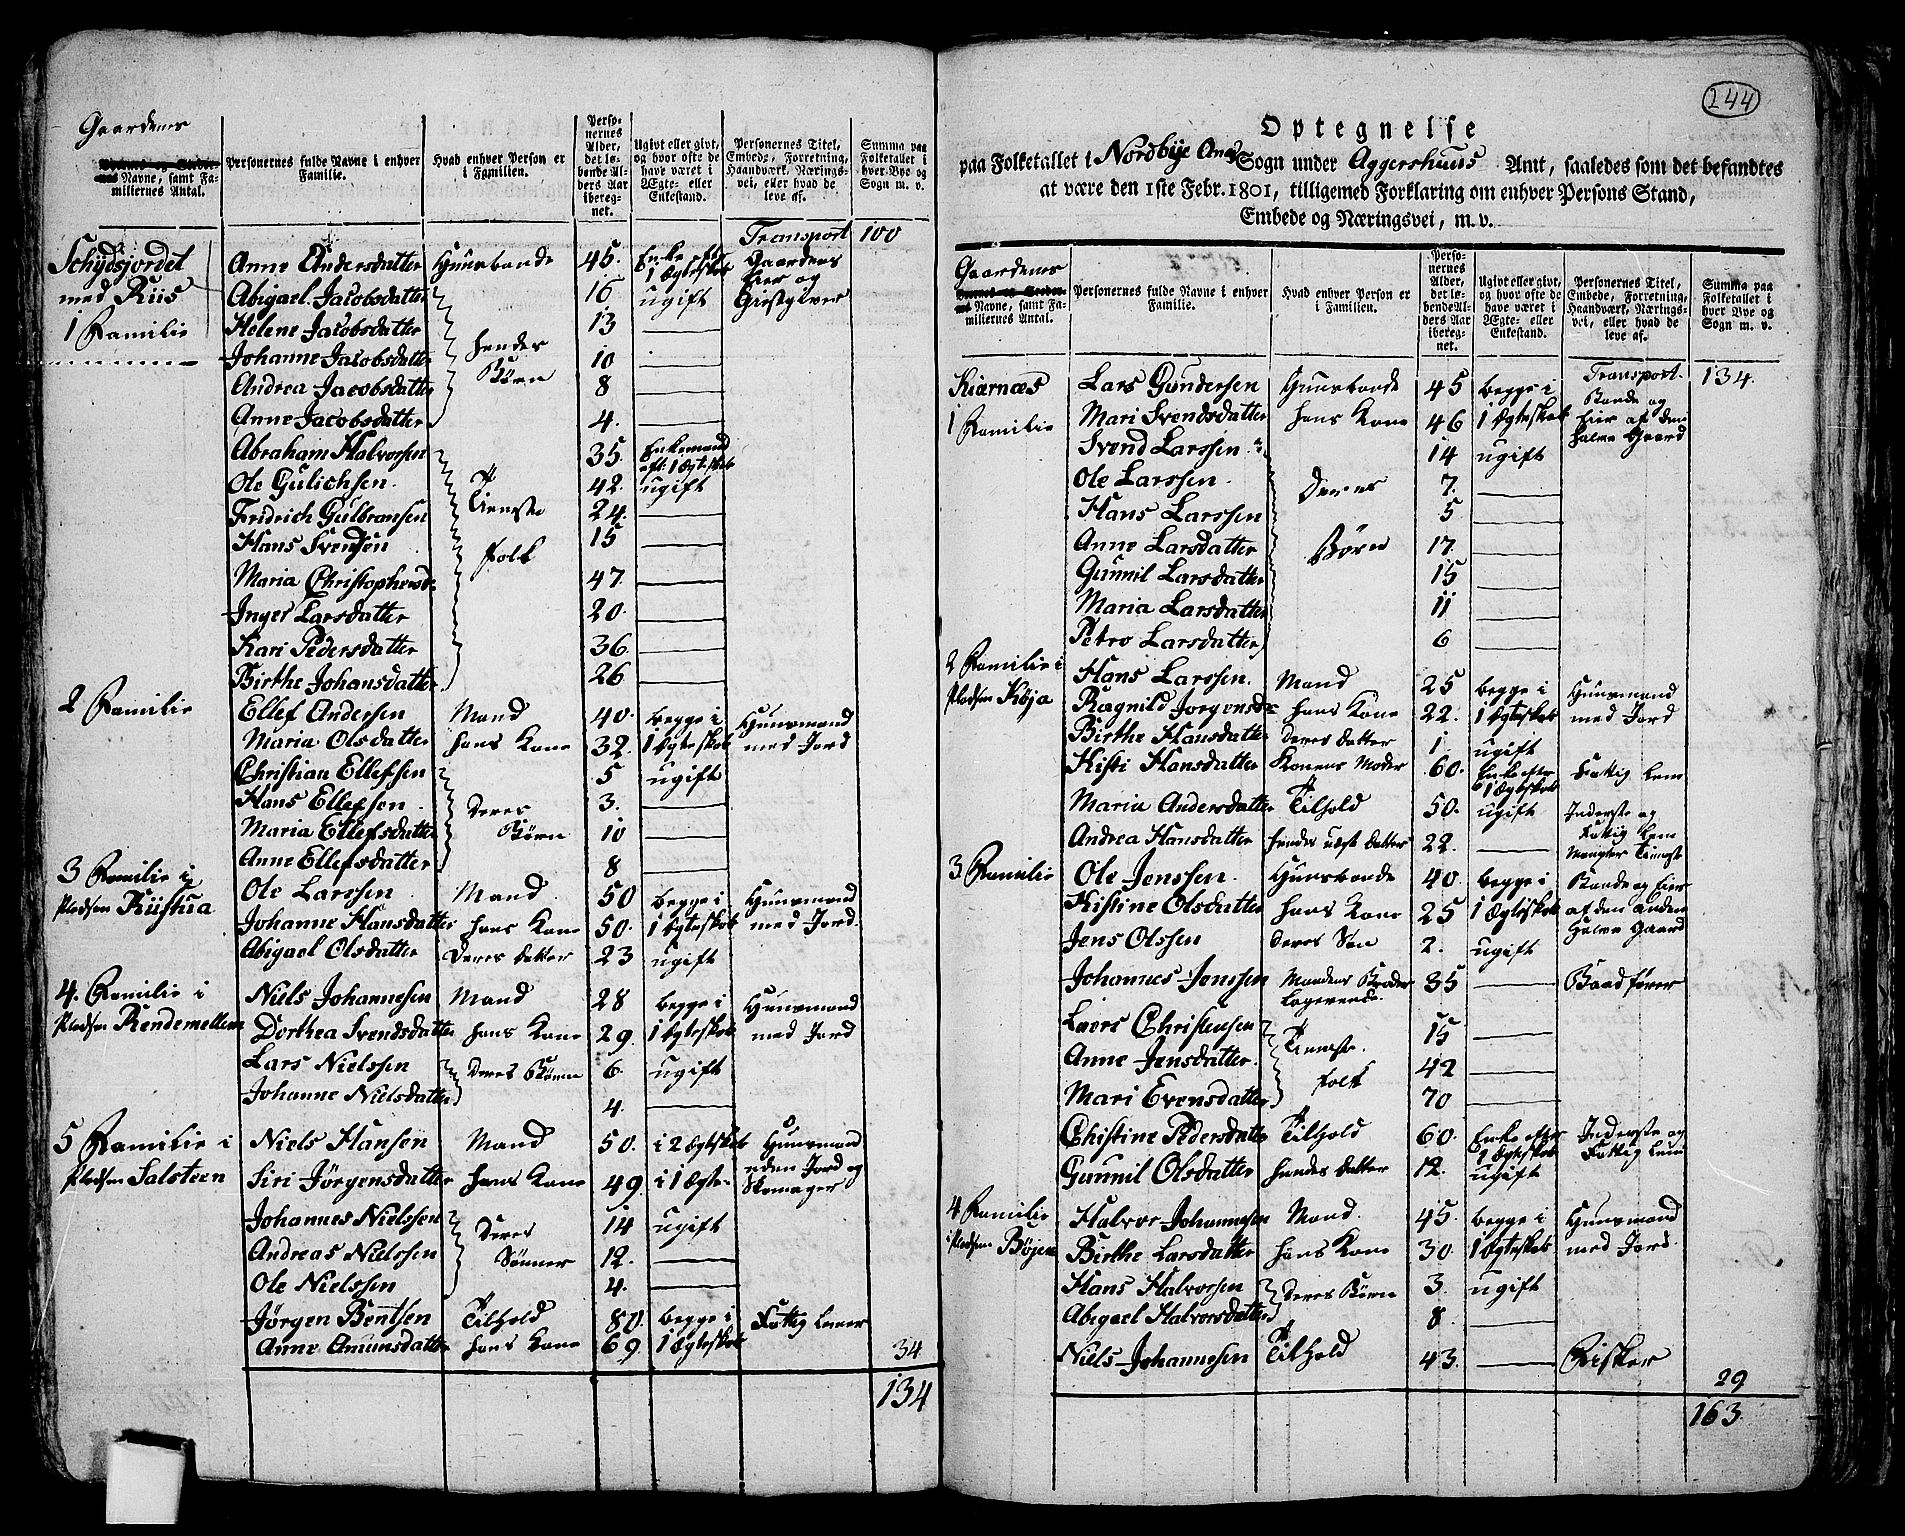 Gaardenes
Byernes og Stedernes Navne, samt Familiernes Antal.
Personernes fulde Navne i enhver Familie.
Hvad enhver Person er i Familien.
Personernes Alder, det løbende Alders Aar iberegnet.
Ugivt eller givt, og hvor ofte de have været i Ægte- eller Enkestand.
Personernes Titel, Embede, Forretning, Haandværk, Næringsvei, eller hvad de leve af.
Summa paa Folketallet i hver Bye og Sogn m. v.
Transport 100
Schydsjordet Anne Andersdatter Huusbonde 45. Enke efter 1 Ægteskab Gaardens Eier og Giestgiver
med Riis Abigael Jacobsdatter hendes Børn 16 ugift
1 Familie Helene Jacobsdatter 13 —
Johanne Jacobsdatter 10 —
Andrea Jacobsdatter 8 —
Anne Jacobsdatter 4. —
Abraham Halvorsen Tieneste folk 35. Enkemand eft. 1 Ægteskab
Ole Gulichsen. 42. ugift
Fridrich Gulbransen 24. —
Hans Svensen 15 —
Maria Christophersd. 47. —
Inger Larsdatter 20. —
Kari Pedersdatter 36. —
Birthe Johansdatter 26 —
2 Familie Ellef Andersen Mand 40. begge i Huusmand
Maria Olsdatter hans Kone 32. 1 Ægteskab med Jord
Christian Ellefsen Deres Børn 5 ugift
Hans Ellefsen 3. —
Maria Ellefsdatter 10 —
Anne Ellefsdatter 8 —
3 Familie i Ole Larssen Mand 50 begge i Huusmand
Pladsen Kiistua Johanne Hansdatter hans Kone 50. 1 Ægteskab med Jord.
Abigael Olsdatter Deres datter 23 ugift
4. Familie i Niels Johannesen Mand 28 begge i Huusmand
Pladsen Rendemellem Dorthea Svendsdatter hans Kone 29. 1 Ægteskab med Jord
Lars Nielssen Deres Børn 6. ugift
Johanne Nielsdatter 4. —
5 Familie i Niels Hansen Mand 50. i 2 Ægteskab Huusmand
Pladsen Salsteen Siri Jørgensdatter hans Kone 49. i 1 Ægte- uden Jord og Skomager
Johannes Nielssen Deres Sønner 14 ugift
Andreas Nielssen 12. —
Ole Nielssen 4. —
Jørgen Bentsen Tilhold 80. begge i Fattig Lemer
Anne Amunsdatter hans Kone 69 1 Ægteskab 34
134
244
Optegnelse
paa Folketallet i Nordbye Anex Sogn under Aggershuus Amt, saaledes som det befandtes
at være den 1ste Febr. 1801, tilligemed Forklaring om enhver Persons Stand,
Embede og Næringsvei, m. v.
Gaardenes
Byernes og Stedernes Navne, samt Familiernes Antal.
Personernes fulde Navne i enhver Familie.
Hvad enhver Person er i Familien.
Personernes Alder, det løbende Alders Aar iberegnet.
Ugivt eller givt, og hvor ofte de have været i Ægte- eller Enkestand.
Personernes Titel, Embede, Forretning, Haandværk, Næringsvei, eller hvad de leve af.
Summa paa Folketallet i hver Bye og Sogn m. v.
Transport. 134.
Kiærnæs Lars Gundersen Huusbonde 45 begge i Bonde og
1 Familie Mari Svendsdatter hans Kone 46 1 Ægteskab Eier af den halve Gaard
Svend Larssen. Deres Børn 14 ugift
Ole Larssen. 7. —
Hans Larssen 5 —
Anne Larsdatter 17. —
Gunnil Larsdatter 15 —
Maria Larsdatter 11 —
Petro Larsdatter 6 —
2 Familie i Hans Larssen. Mand 25 begge i Huusmand
Pladsen Køja Ragnild Jørgensd= hans Kone 22. 1 Ægteskab med Jord
Birthe Hansdatter deres datter 1. ugift
Kisti Hansdatter Konens Moder 60. Enke efter 1 Ægteskab Fattig Lem
Maria Andersdatter Tilhold 50. ugift Inderste og Fattig Lem
Andrea Hansdatter hendes uægt datter 22. — Mangler Tieneste
3 Familie Ole Jenssen. Huusbonde 40. begge i Bonde og Eier
Kistine Olsdatter hans Kone 25 1 Ægteskab af den anden halve Gaard
Jens Olssen deres Søn 2. ugift
Johannes Jenssen Mandens Broder Logerende. 35 — Baadfører
Laers Christensen Tieneste folk 15 —
Anne Jensdatter. 42 —
Mari Evensdatter 70 —
Christine Pedersdatter Tilhold 60. Enke efter 1 Ægteskab Inderste og Fattig Lem
Gunnil Olsdatter hendes datter 12. ugift
4 Familie Halvor Johannesen Mand. 45. begge i Huusmand
i Pladsen Bøjen Birthe Larsdatter hans Kone 30. 1 Ægteskab med Jord.
Hans Halvorsen deres Børn 3. ugift
Abigael Halvorsdatter 8. —
Niels Johannesen Tilhold 43. — Fisker 29
163.